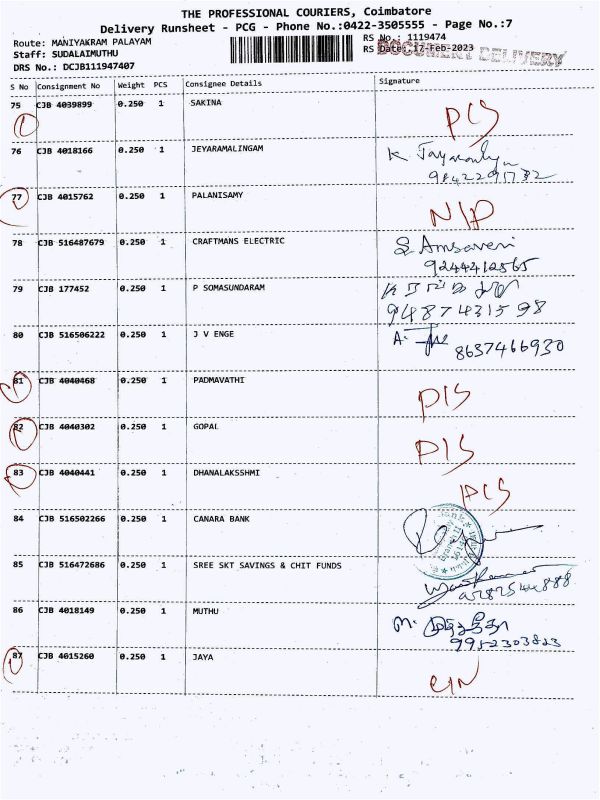 THE PROFESSIONAL COURIERS, Coimbatore
Delivery Runsheet - PCG - Phone No.:0422-3505555 - Page No.:7
Route: MANIYAKRAM PALAYAM
RS No.: 1119474
Staff: SUDALAIMUTHU
RS Date: 17-Feb-2023
DOCUMENT DELIVERY
DRS No.: DCJB111947407
S No Consignment No Weight PCS Consignee Details Signature
75 CJB 4039899 0.250 1 SAKINA
76 CJB 4018166 0.250 1 JEYARAMALINGAM K
77 CJB 4015762 0.250 1 PALANISAMY
78 CJB 516487679 0.250 1 CRAFTMANS ELECTRIC S Amsaveni
9244412565
79 CJB 177452 0.250 1 P SOMASUNDARAM
9487431598
80 CJB 516506222 0.250 1 J V ENGE A.
8637466930
81 CJB 4040468 0.250 1 PADMAVATHI
82 CJB 4040302 0.250 1 GOPAL
83 CJB 4040441 0.250 1 DHANALAKSSHMI
84 CJB 516502266 0.250 1 CANARA BANK
85 CJB 516472686 0.250 1 SREE SKT SAVINGS & CHIT FUNDS
86 CJB 4018149 0.250 1 MUTHU
9952303823
87 CJB 4015260 0.250 1 JAYA